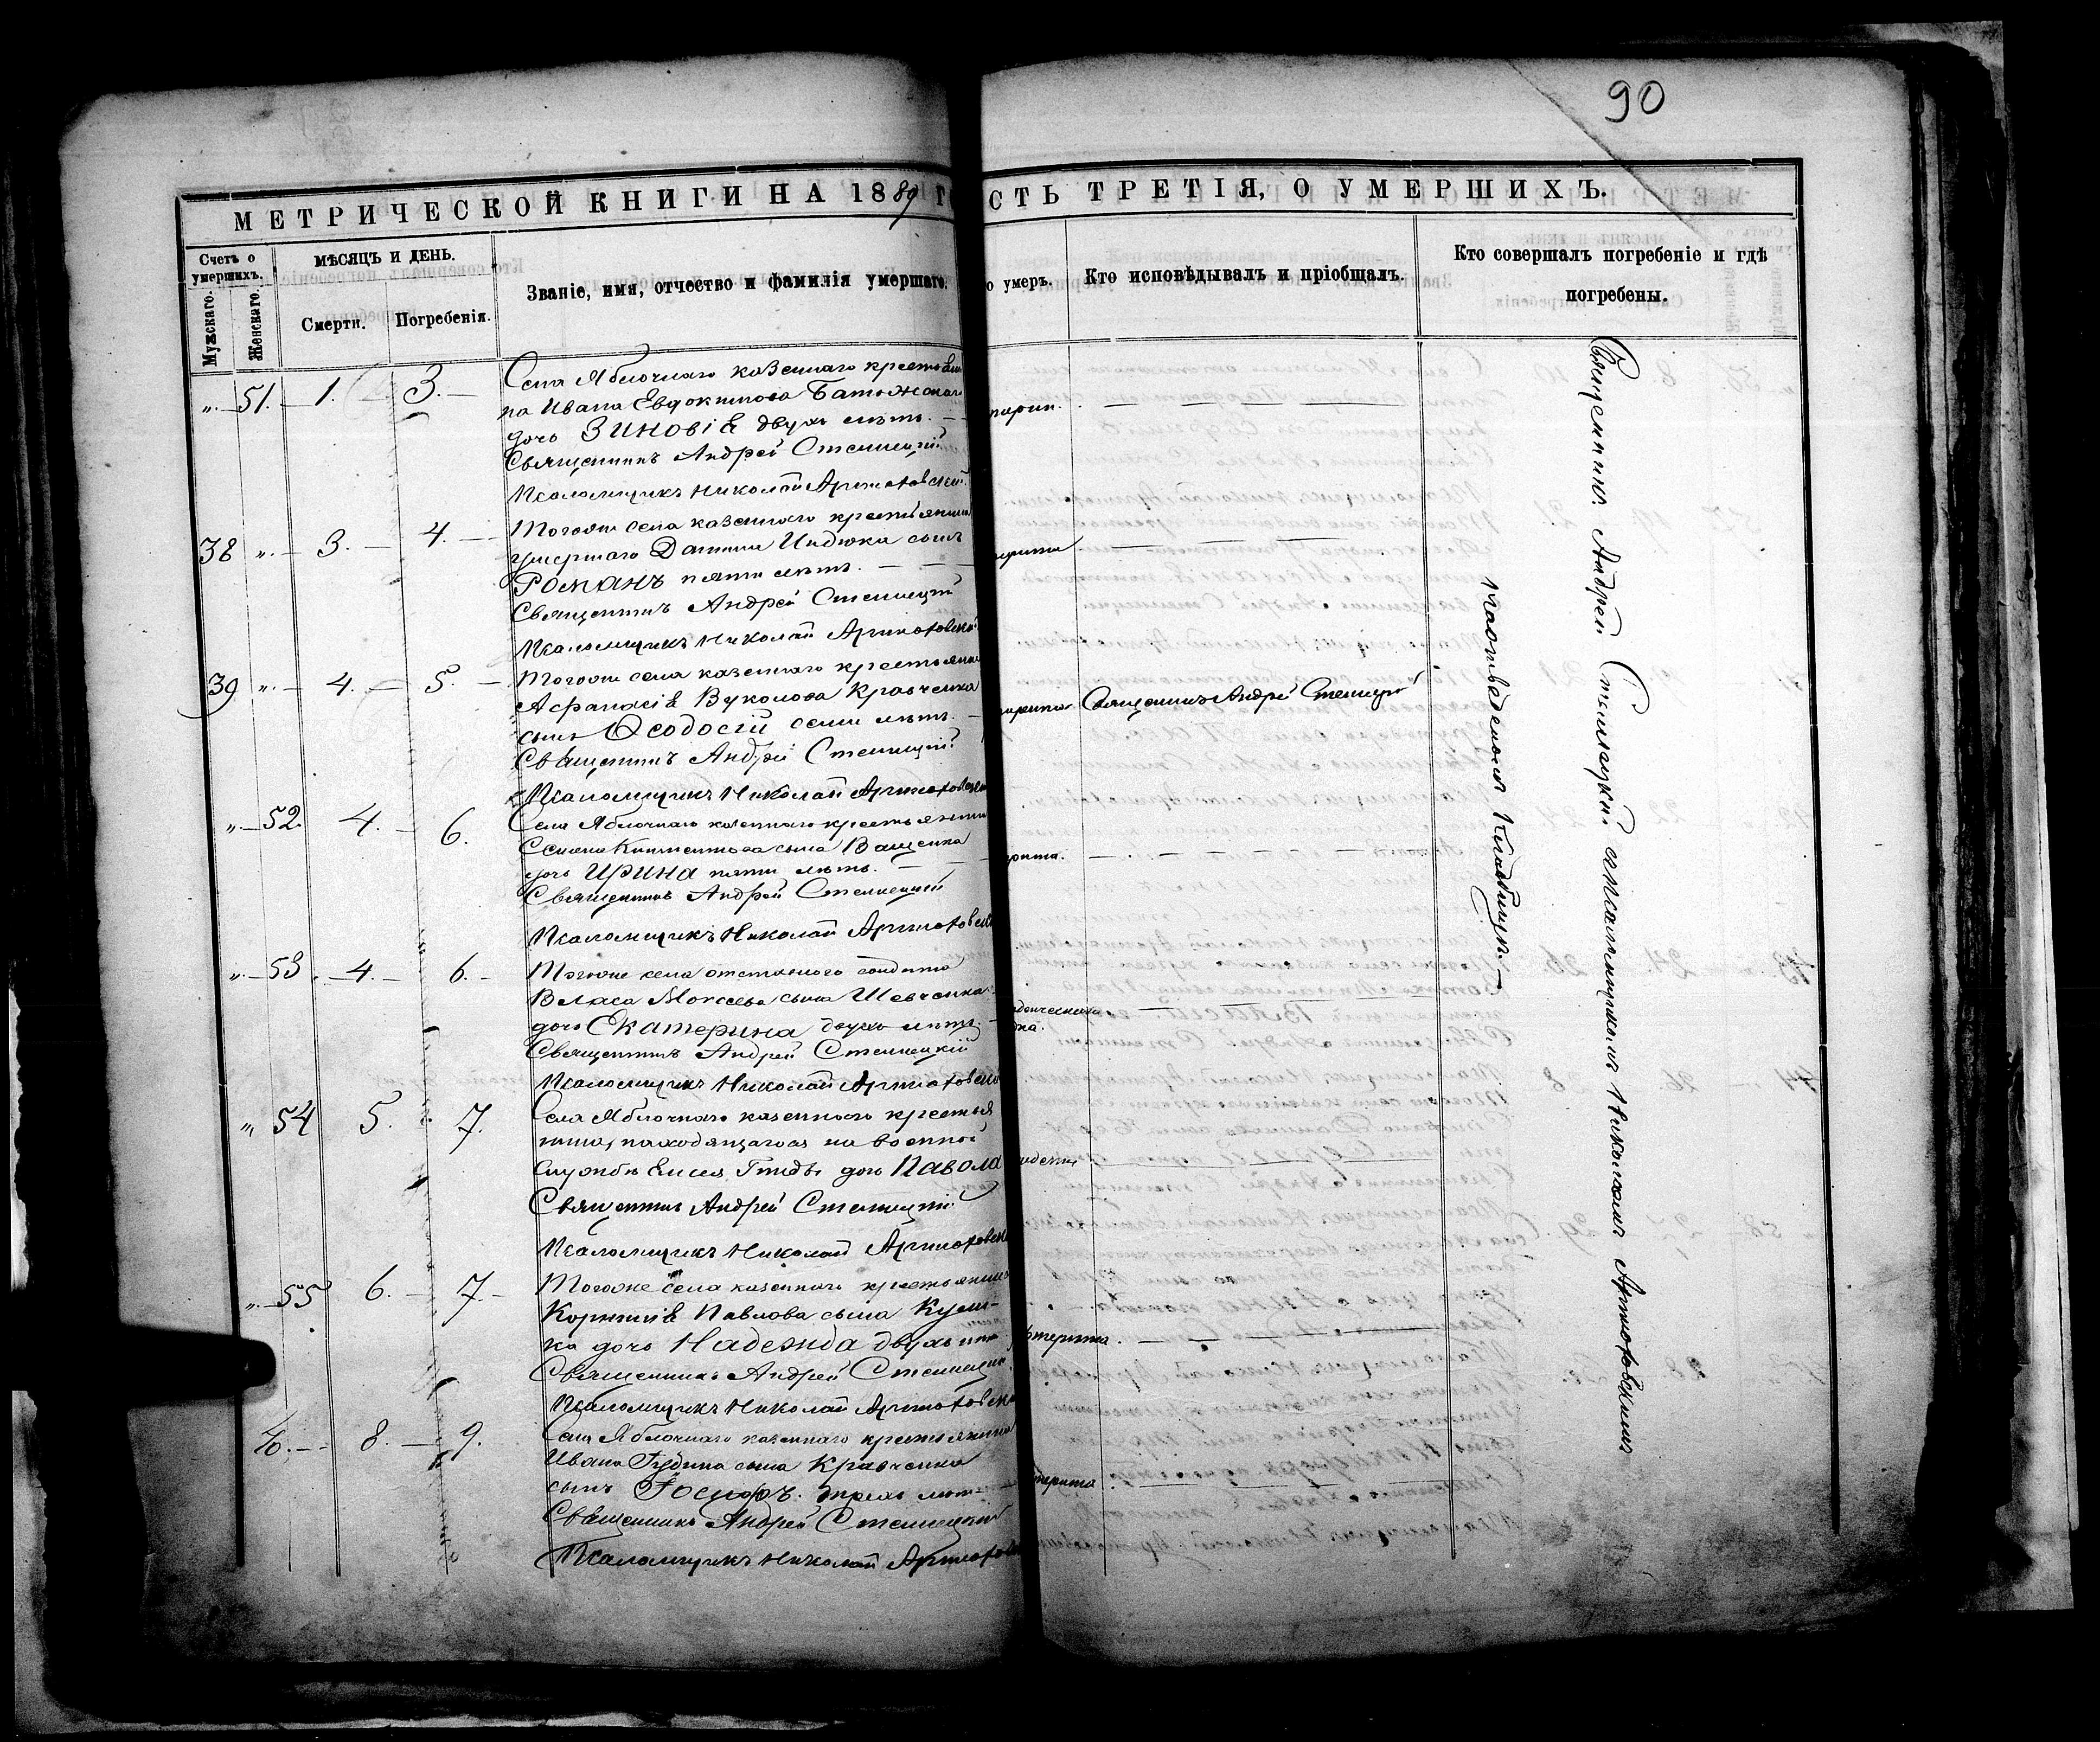 90
МЕТРИЧЕСКОЙ КНИГИ НА 1889 Г
СТЬ ТРЕТІЯ, О УМЕРШИХЪ.
Счетъ о умершихъ.
Мужскаго.
Женскаго.
МѢСЯЦЪ И ДЕНЬ.
Смерти.
Погребенія.
Званіе, имя, отчество и фамилія умершаго.
о умеръ.
Кто исповѣдывалъ и пріобщалъ.
Кто совершалъ погребеніе и гдѣ
погребены.
". — 51. — 1. 3. —
Села Яблочнаго казеннаго крестьяни
на Ивана Евдокимова
дочь Зиновія двухъ лѣтъ. —
Священникъ Андрей Стеллецкій
Псаломщикъ Николай Артюховскій
38 ". — 3. — 4. —
Тогоже села казеннаго крестьянина
умершаго Индюка сынъ
Романъ пяти лѣтъ. — —
Священникъ Андрей Стеллецкій
Псаломщикъ Николай Артюховскій
39 ". — 4. — 5. —
Тогоже села казеннаго крестьянина
Афанасія Вуколова Кравченка
сынъ Ѳеодосій семи лѣтъ. —
Священникъ Андрей Стеллецкій
Псаломщикъ Николай Артюховскій
Священникъ Андрей Стеллецкій
". — 52. 4. — 6.
Села Яблочнаго казеннаго крестьянина
сына Ващенка
дочь Ирина пяти лѣтъ. —
Священникъ Андрей Стеллецкій
Псаломщикъ Николай Артюховскій
". — 53. — 4. — 6. —
Тогоже села отставнаго солдата
Власа Моисеева сына Шевченка
дочь Екатерина двухъ лѣтъ. —
Священникъ Андрей Стеллецкій
Псаломщикъ Николай Артюховскій
" 54 5. 7.
Села Яблочнаго казеннаго крестья
нина, находящагося на военной
службѣ Елисея дочь Павола
Священникъ Андрей Стеллецкій
Псаломщикъ Николай Артюховскій
". — 55 6. — 7. —
Тогоже села казеннаго крестьянина
Корнилія Павлова сына
ка дочь Надежда двухъ лѣтъ
Священникъ Андрей Стеллецкій
Псаломщикъ Николай Артюховскій
40. — 8. — 9.
Села Яблочнаго казеннаго крестьянина
Ивана сына Кравченка
сынъ Іосифъ. трехъ лѣтъ
Священникъ Андрей Стеллецкій
Псаломщикъ Николай Артюхов
Священникъ Андрей Стеллецкій съ псаломщикомъ Николаемъ Артюховскимъ
на отведенномъ кладбищѣ. —